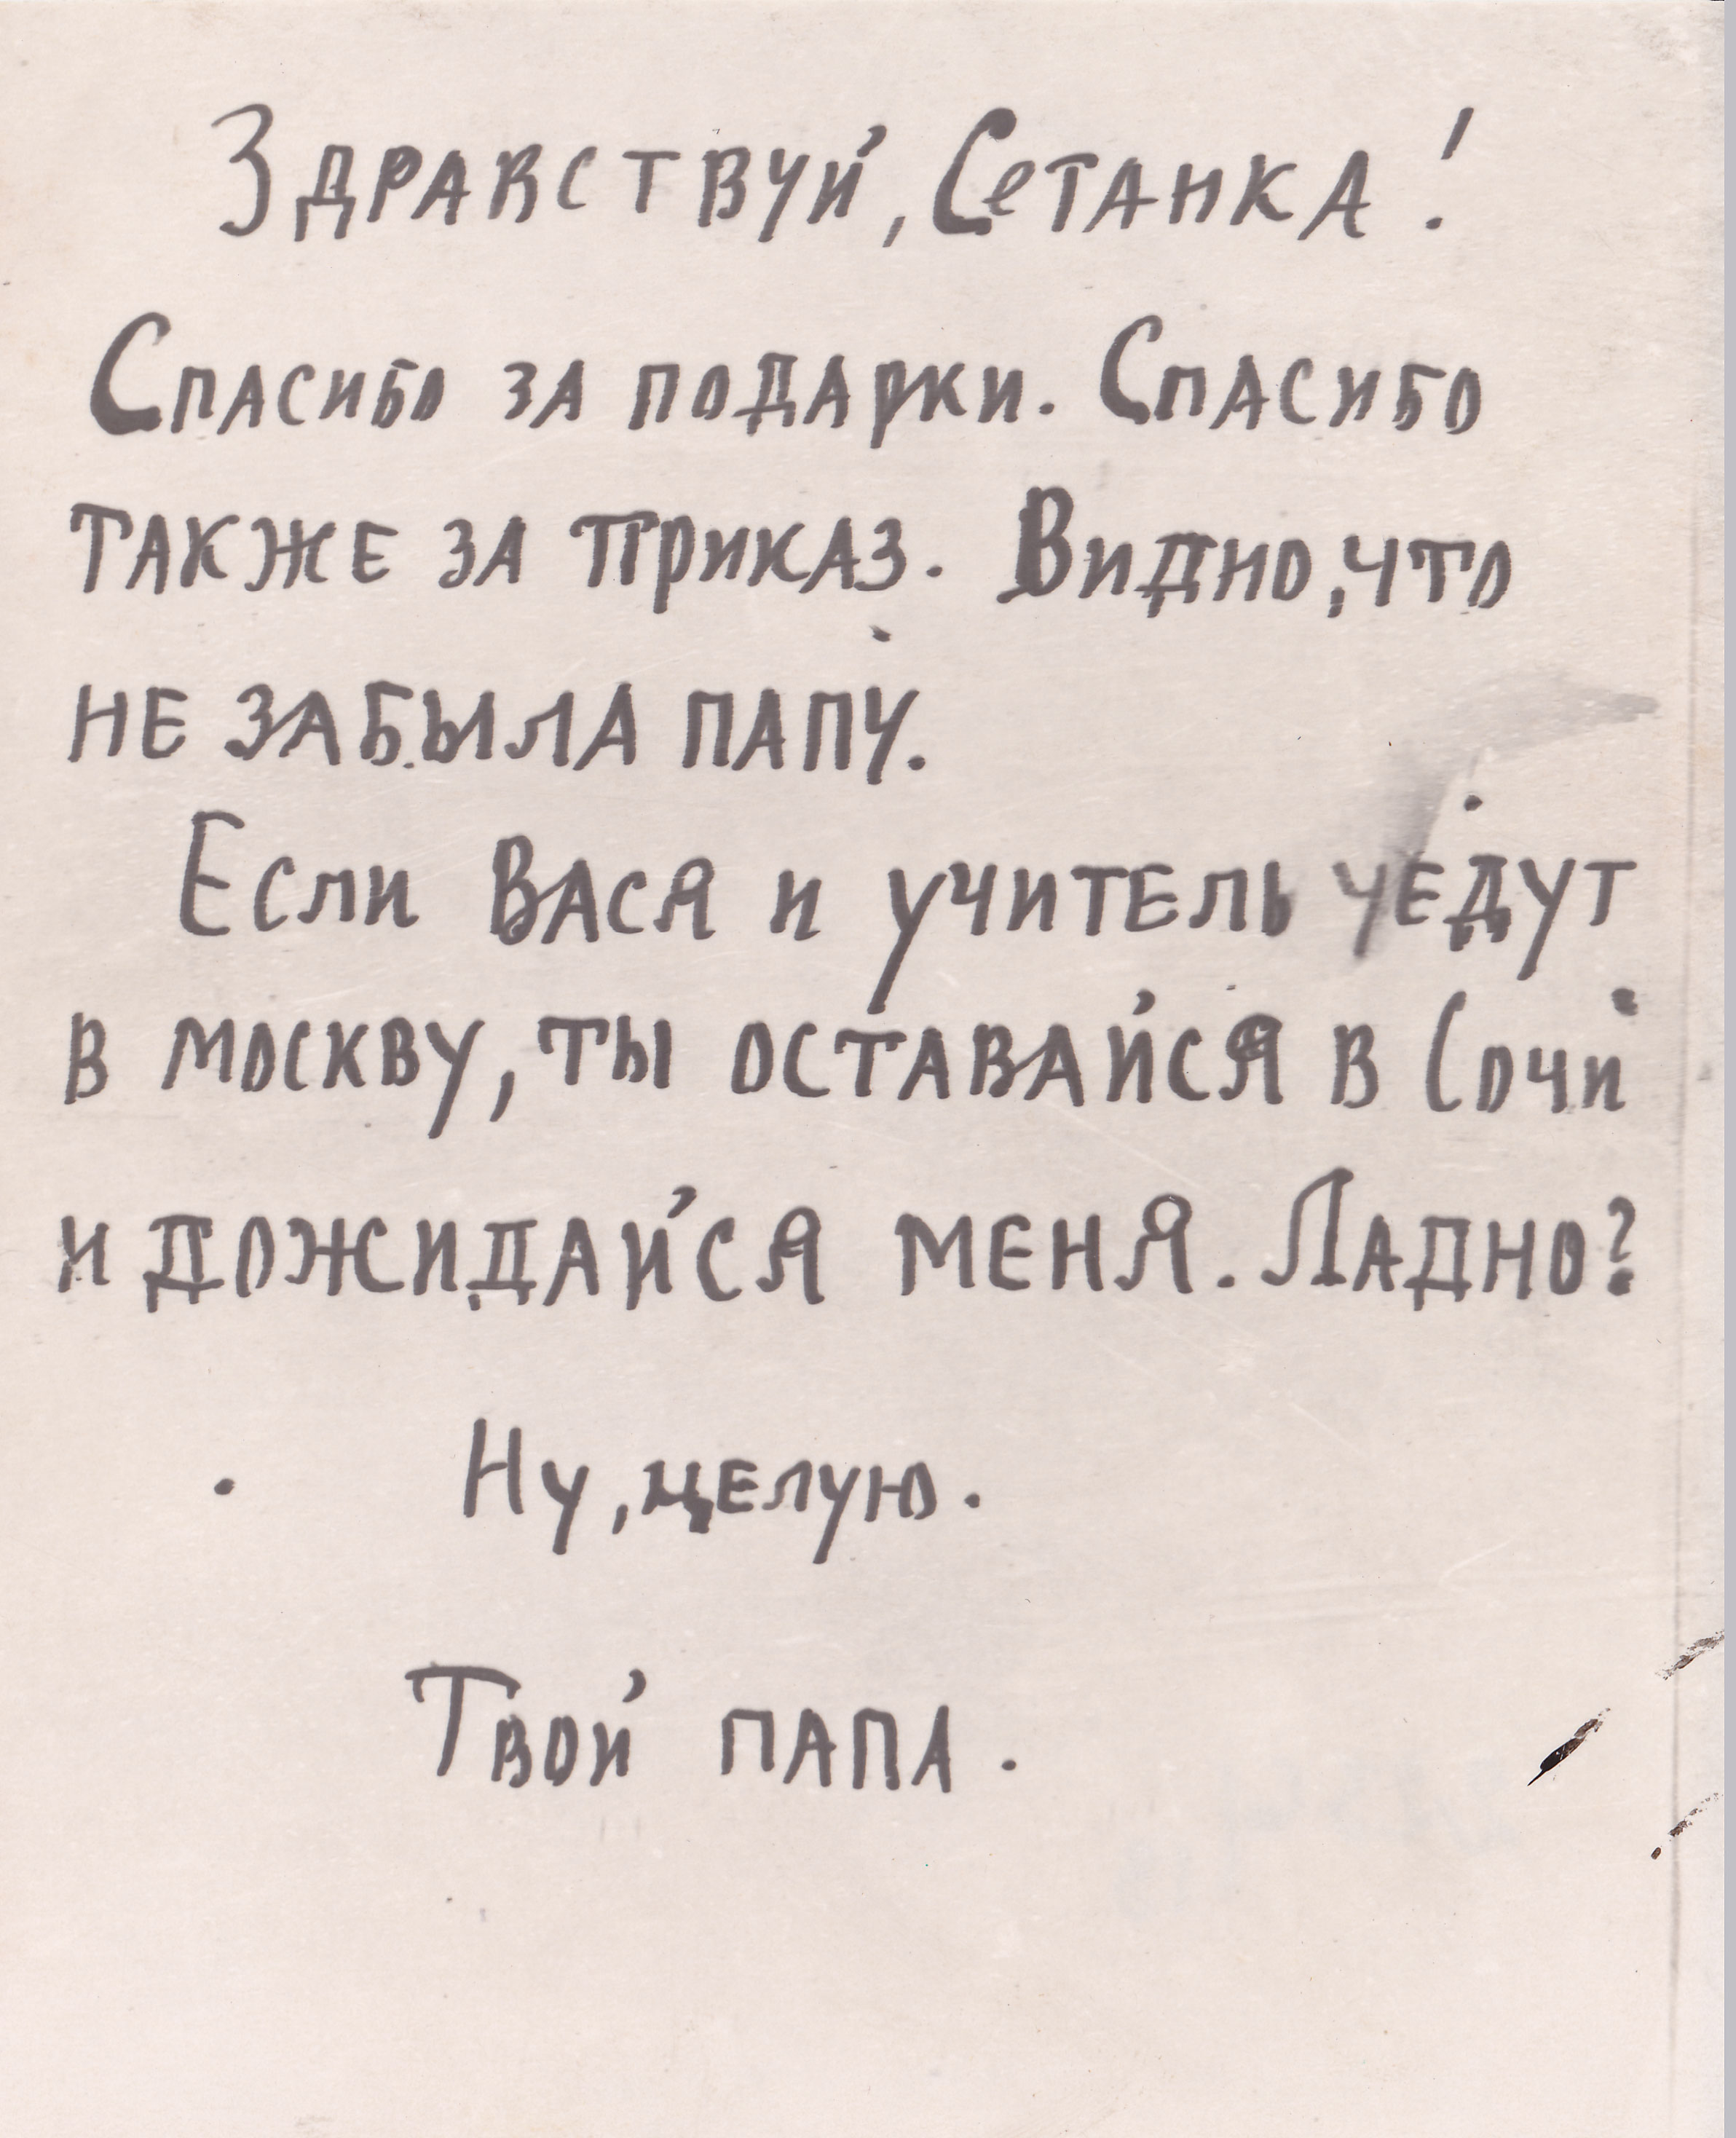 Здравствуй, Сетанка!
Спасибо за подарки. Спасибо
также за приказ. Видно, что
не забыла папу.
Если Вася и учитель уедут
в Москву, ты оставайся в Сочи
и дожидайся меня. Ладно?
Ну, целую.
Твой папа.